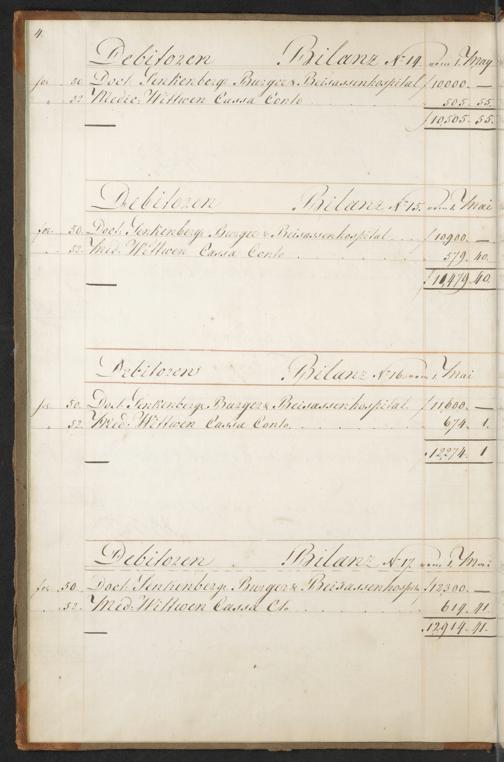 4.
Debitoren Bilanz No 14. vom 1. May
fol. 50. Doct. Senkenberg. Burger & Beisassenhospital f 10000. —
" 52. Medic. Wittwen Cassa Conto . . . . 505. 55.
f 10505. 55.
Debitoren Bilanz No 15. vom 1. Mai
fol. 50. Doct. Senkenberg. Burger & Beisassenhospital . . . f 10900. —
" 52. Med. Wittwen Cassa Conto . . . . 579. 40.
f 11,479. 40.
Debitoren Bilanz No 16. vom 1. Mai
fol. 50. Doct. Senkenberg. Burger & Beisassenhospital . f 11600. —
" 52. Med. Wittwen Cassa Conto . . . . 674. 1.
f 12,274. 1
Debitoren Bilanz No 17. vom 1. Mai
fol. 50. Doct. Senkenberg. Burger & Beisassenhospit. f 12300. —
" 52. Med. Wittwen Cassa Ct. . . . . 614. 41
f 12914. 41.